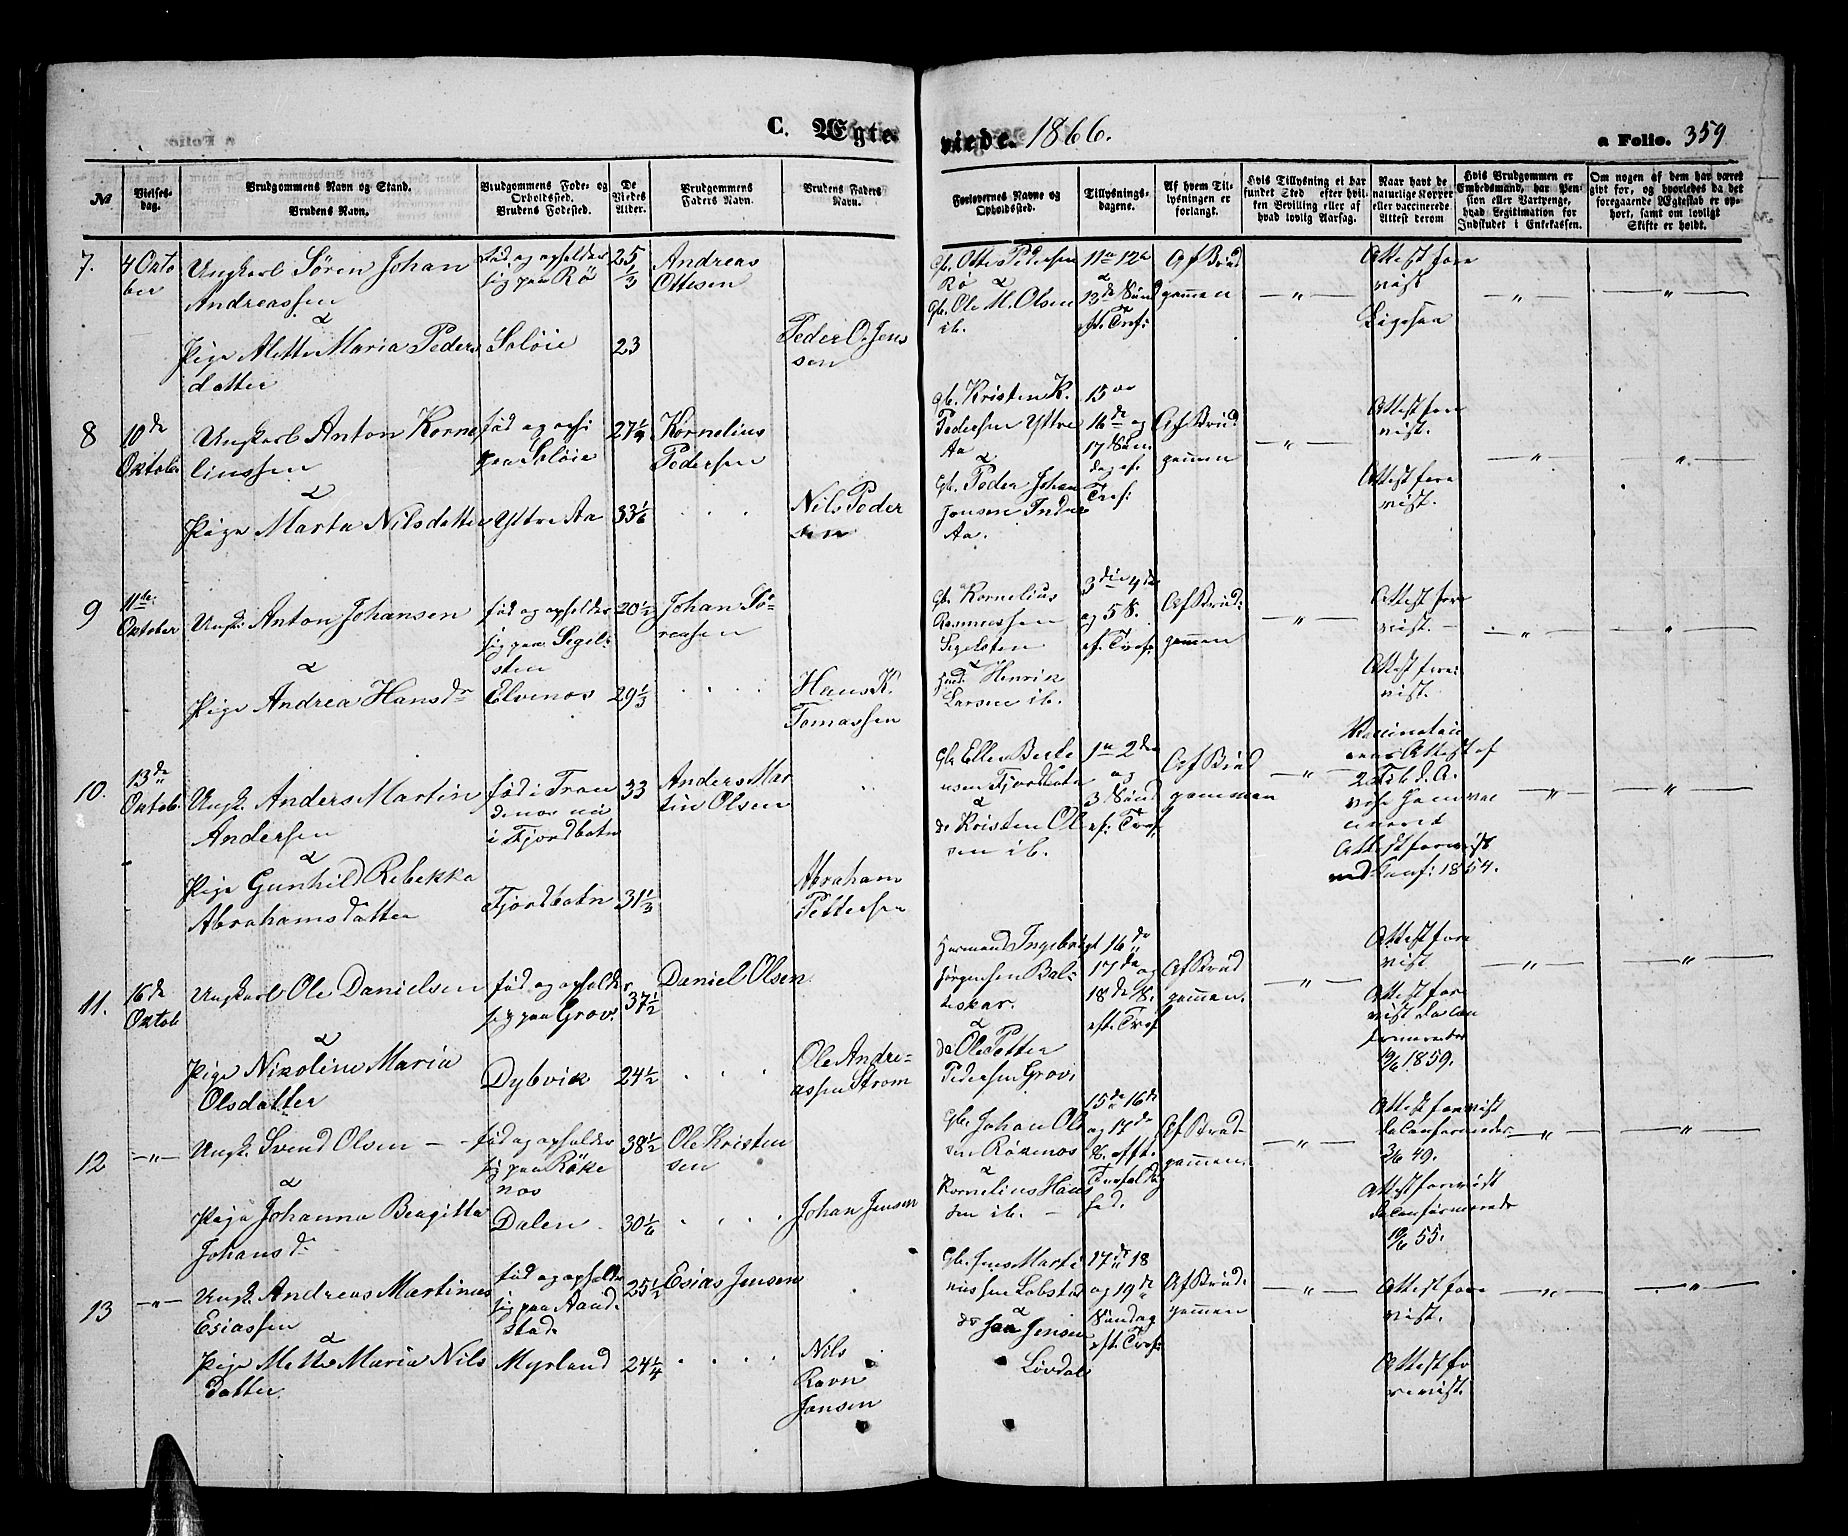 C. Ægte-
viede. 1866.
a Folio. 359
№
Vielses-
dag.
Brudgommens Navn og Stand.
Brudens Navn.
Brudgommens Føde- og
Opholdssted.
Brudens Fødested.
De
Viedes
Alder.
Brudgommens
Faders Navn.
Brudens Faders
Navn.
Forlovernes Navne og
Opholdssted.
Tillysnings-
dagene.
Af hvem Til-
lysningen er
forlangt.
Hvis Tillysning ei har
fundet Sted efter hvil-
ken Bevilling eller af
hvad lovlig Aarsag.
Naar havt de
naturlige Kopper
eller vaccinerede
Attest derom
Hvis Brudgommen er
Embedsmand, har Pen-
sion eller Vartpenge,
hvad Legitimation for
Indskudet i Enkekassen.
Om nogen af dem har været
givt for, og hvorledes da det
foregaaende Ægteskab er op-
hørt, samt om lovligt
Skifte er holdt.
7.
4 Okto
ber
Ungkarl Sören Johan
Andreassen
&
Pige Alette Maria Peders
datter
född og opholder
sig paa Rö
Salöie
25
1/3
23
Andreas
Ottesen
Peder O. Jens
sen
Gb. Otte Pedersen
Rö &
Gb. Ole M. Olsen
ib.
11te 12te
&
13de Sönd
ef. Tref:
Af Brud
gommen
— " —
Attest fore
vist
Ligesaa
— " —
— " —
8
10de
Oktober
Ungkarl Anton Korne
liussen
&
Pige Marta Nilsdatter
född og ops:
paa Salöie
Yttre Aa
27 1/9
33 1/6
Kornelius
Pedersen
Nils Peder
sen
Gb. Kristen K.
Pedersen Yttre
Aa &
Gb. Peder Johan
Jensen Indre
Aa.
15de
16de og
17 Sön
dag ef.
Tref:
Af Brud
gommen
— " —
Attest fore
vist.
Attest fore
vist.
— " —
— " —
9
11te
Oktober
Ungk: Anton Johansen
&
Pige Andrea Hansdr
född og opholder
sig paa Segel-
sten
Elvenes
20 1/2
29 1/3
Johan Sö-
rensen
Hans K.
Tomassen
Gb. Kornelius
Rasmussen
Segelsten
&
Henrik
Larsen ib.
3die 4de
og 5 S.
ef. Tref:
Af Brud-
gommen
— " —
Attest fore
vist. —
Attest fore
vist.
— " —
— " —
10.
13de
Oktob.
Ungk. Anders Martin
Andersen
&
Pige Gunhild Rebekka
Abrahamsdatter
född i Tran
denes nu
i Fjordbotn
Fjordbotn
33
31 1/3
Anders Mar
tin Olsen
Abraham
Pettersen
Fjordbotn
&
do Kristen Ol
sen ib.
1te 2den
og
3 Sönd
ef: Tref.
Af Brud
gommen
— " —
Attest forevist
Conf: 1854.
— " —
— " —
11.
16de
Oktob
Ungkarl Ole Danielsen
&
Pige Nikoline Maria
Olsdatter
född og opholder
sig paa Grov.
Dybvik
37 1/2
24 1/2
Daniel Olsen
Ole Andre-
assen Strom
Ingebrigt
Jörgensen Bal-
teskar.
&
do Ole Petter
Pedersen Grov.
16de
17de og
18de S.
eft. Tref
Af Brud
gommen.
— " —
Attest fore
vist
Attest fore
vist da con
firmeredes
1859.
— " —
— " —
12
— " —
Ungk. Svend Olsen —
&
Pige Johanna Beagitta
Johansdr
född og opholder
sig paa Röke
nes
Dalen
38 1/2
30 1/6
Ole Kristen
sen
Johan Jensen
Gb. Johan Ol
sen Rökenes
&
Kornelius Hans
sen ib. —
15de 16de
og 17de
S. efft.
Trefoldig
hed.
Af Brud-
gommen.
— " —
Attest forevist
da confirmeredes
49.
Attest forevist
da confirmerede
55.
— " —
— " —
13
— " —
Ungk. Andreas Martinus
Esiassen
&
Pige Mette Maria Nils
datter
född og opholder
sig paa Aand-
stad.
Myrland
25 1/2
24 1/4
Esias Jensen
Nils
Ravn
Jansen
Gb. Jens Marti
nussen Lobsted
&
do Jensen
Lövdal
17de 18
og 19de
Söndag
eft. Tref:
Af Brud-
gommen
— " —
Attest fore
vist.
Attest fo
revist.
— " —
— " —